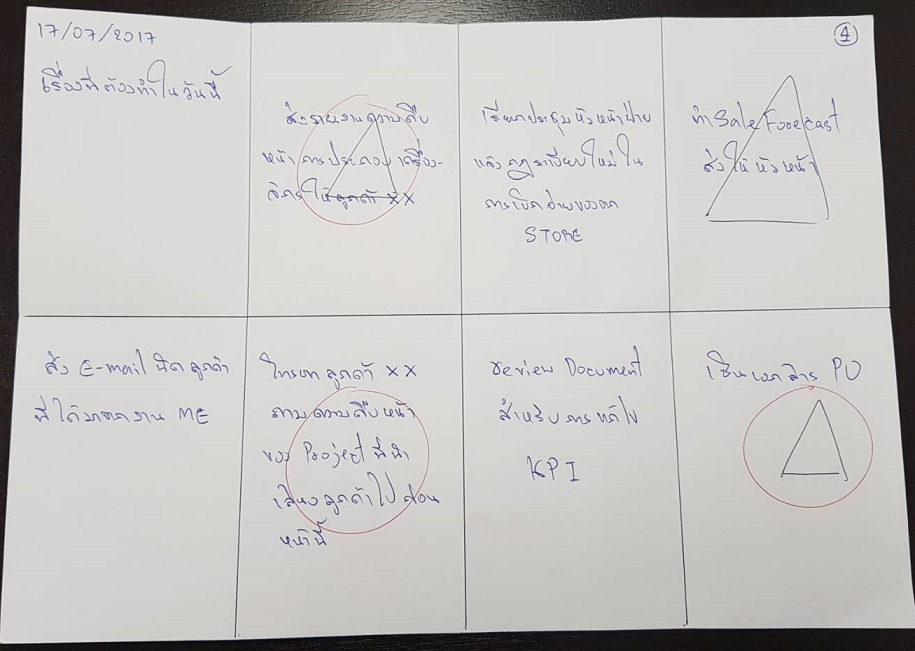 17/07/2017
④
เรื่องที่ต้องทำในวันนี้
ส่งรายงานความคืบ
หน้าการประกอบเครื่อง-
จักรให้ลูกค้า XX
เรียกประชุมหัวหน้าฝ่าย
แจ้งกฎระเบียบใหม่ใน
การเบิกจ่ายของจาก
STORE
ทำ Sale Forecast
ส่งให้หัวหน้า
ส่ง E-mail นัดลูกค้า
ที่ได้มาจากงาน ME
โทรหาลูกค้า XX
ตามความคืบหน้า
ของ Project ที่นำ
เสนอลูกค้าไปก่อน
หน้านี้
review Document
สำหรับการแก้ไข
KPI
เซ็นเอกสาร PO